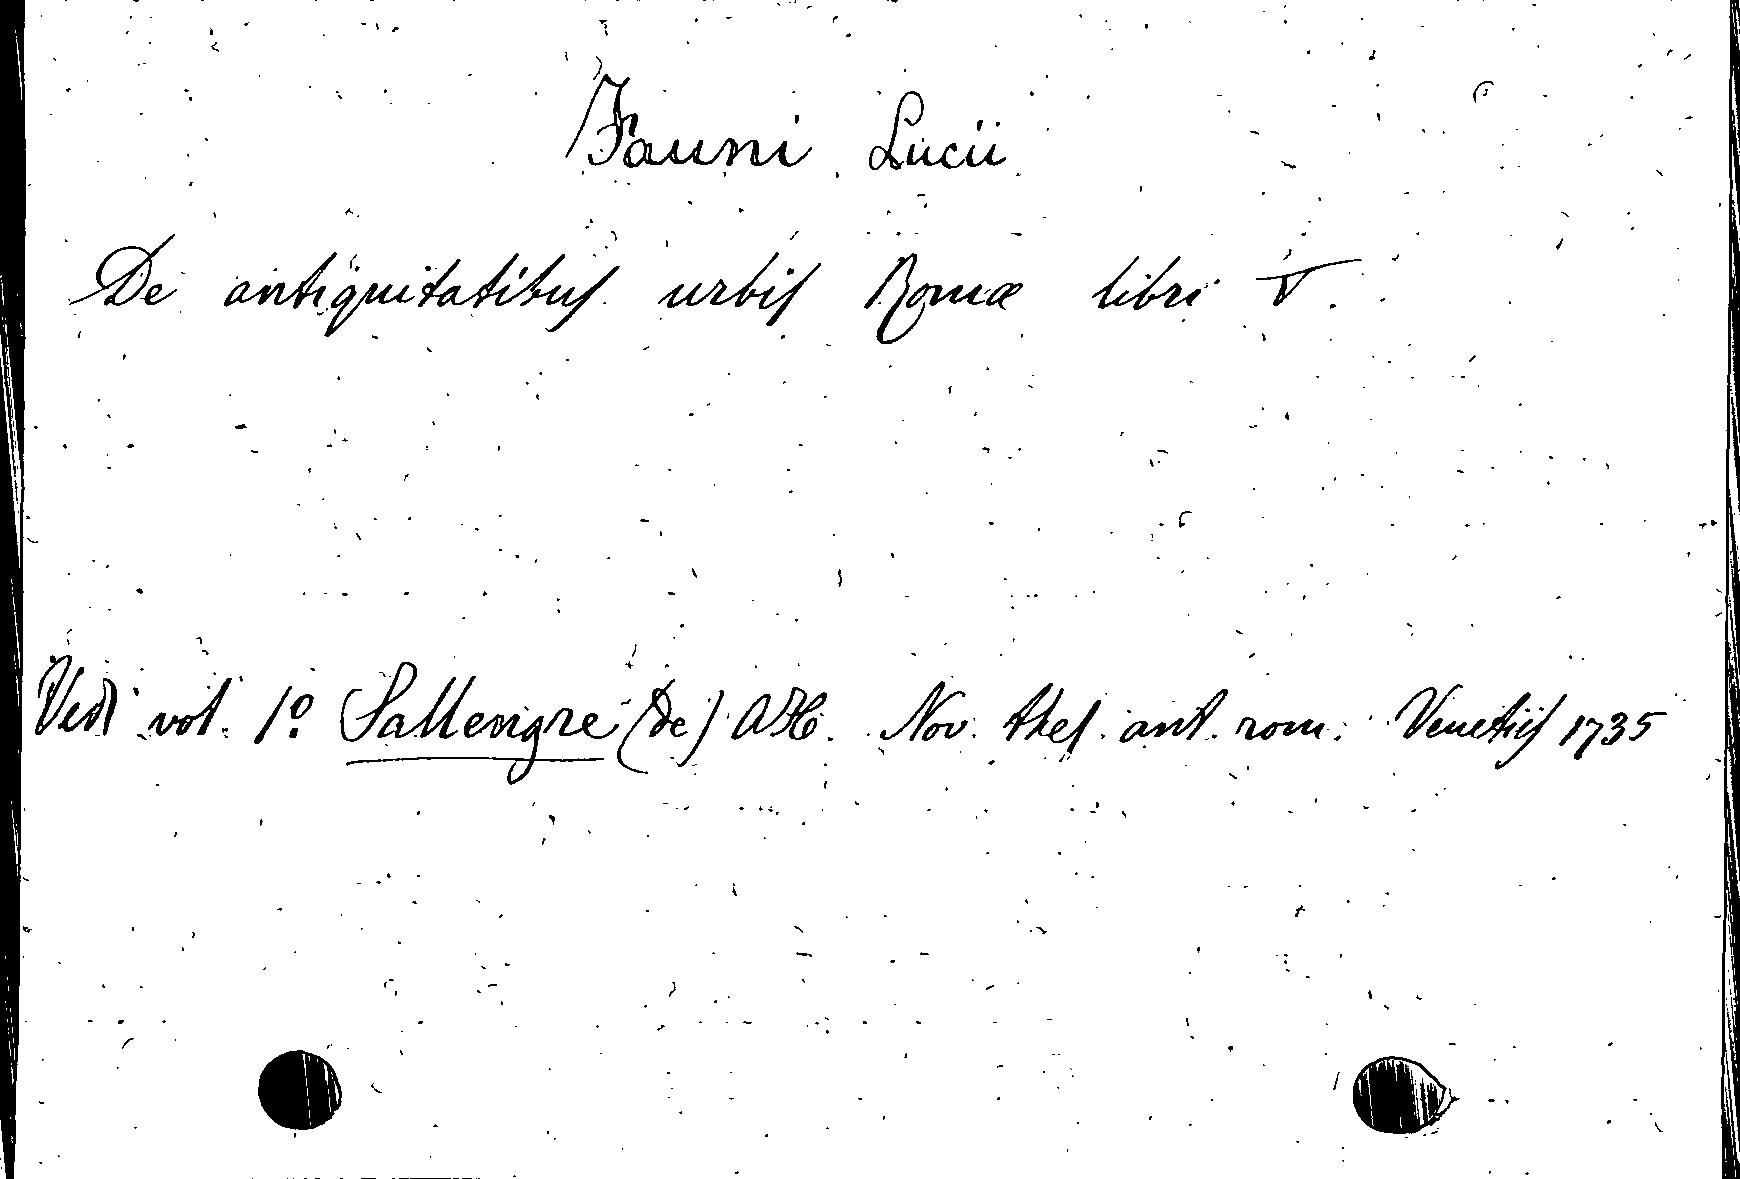 Fauni Lucii
De antiquitatibus urbis Romæ libri V.
Vedi vol. 1º Sallengre (de) A.H. Nov. thes. ant. rom. Venetiis 1735